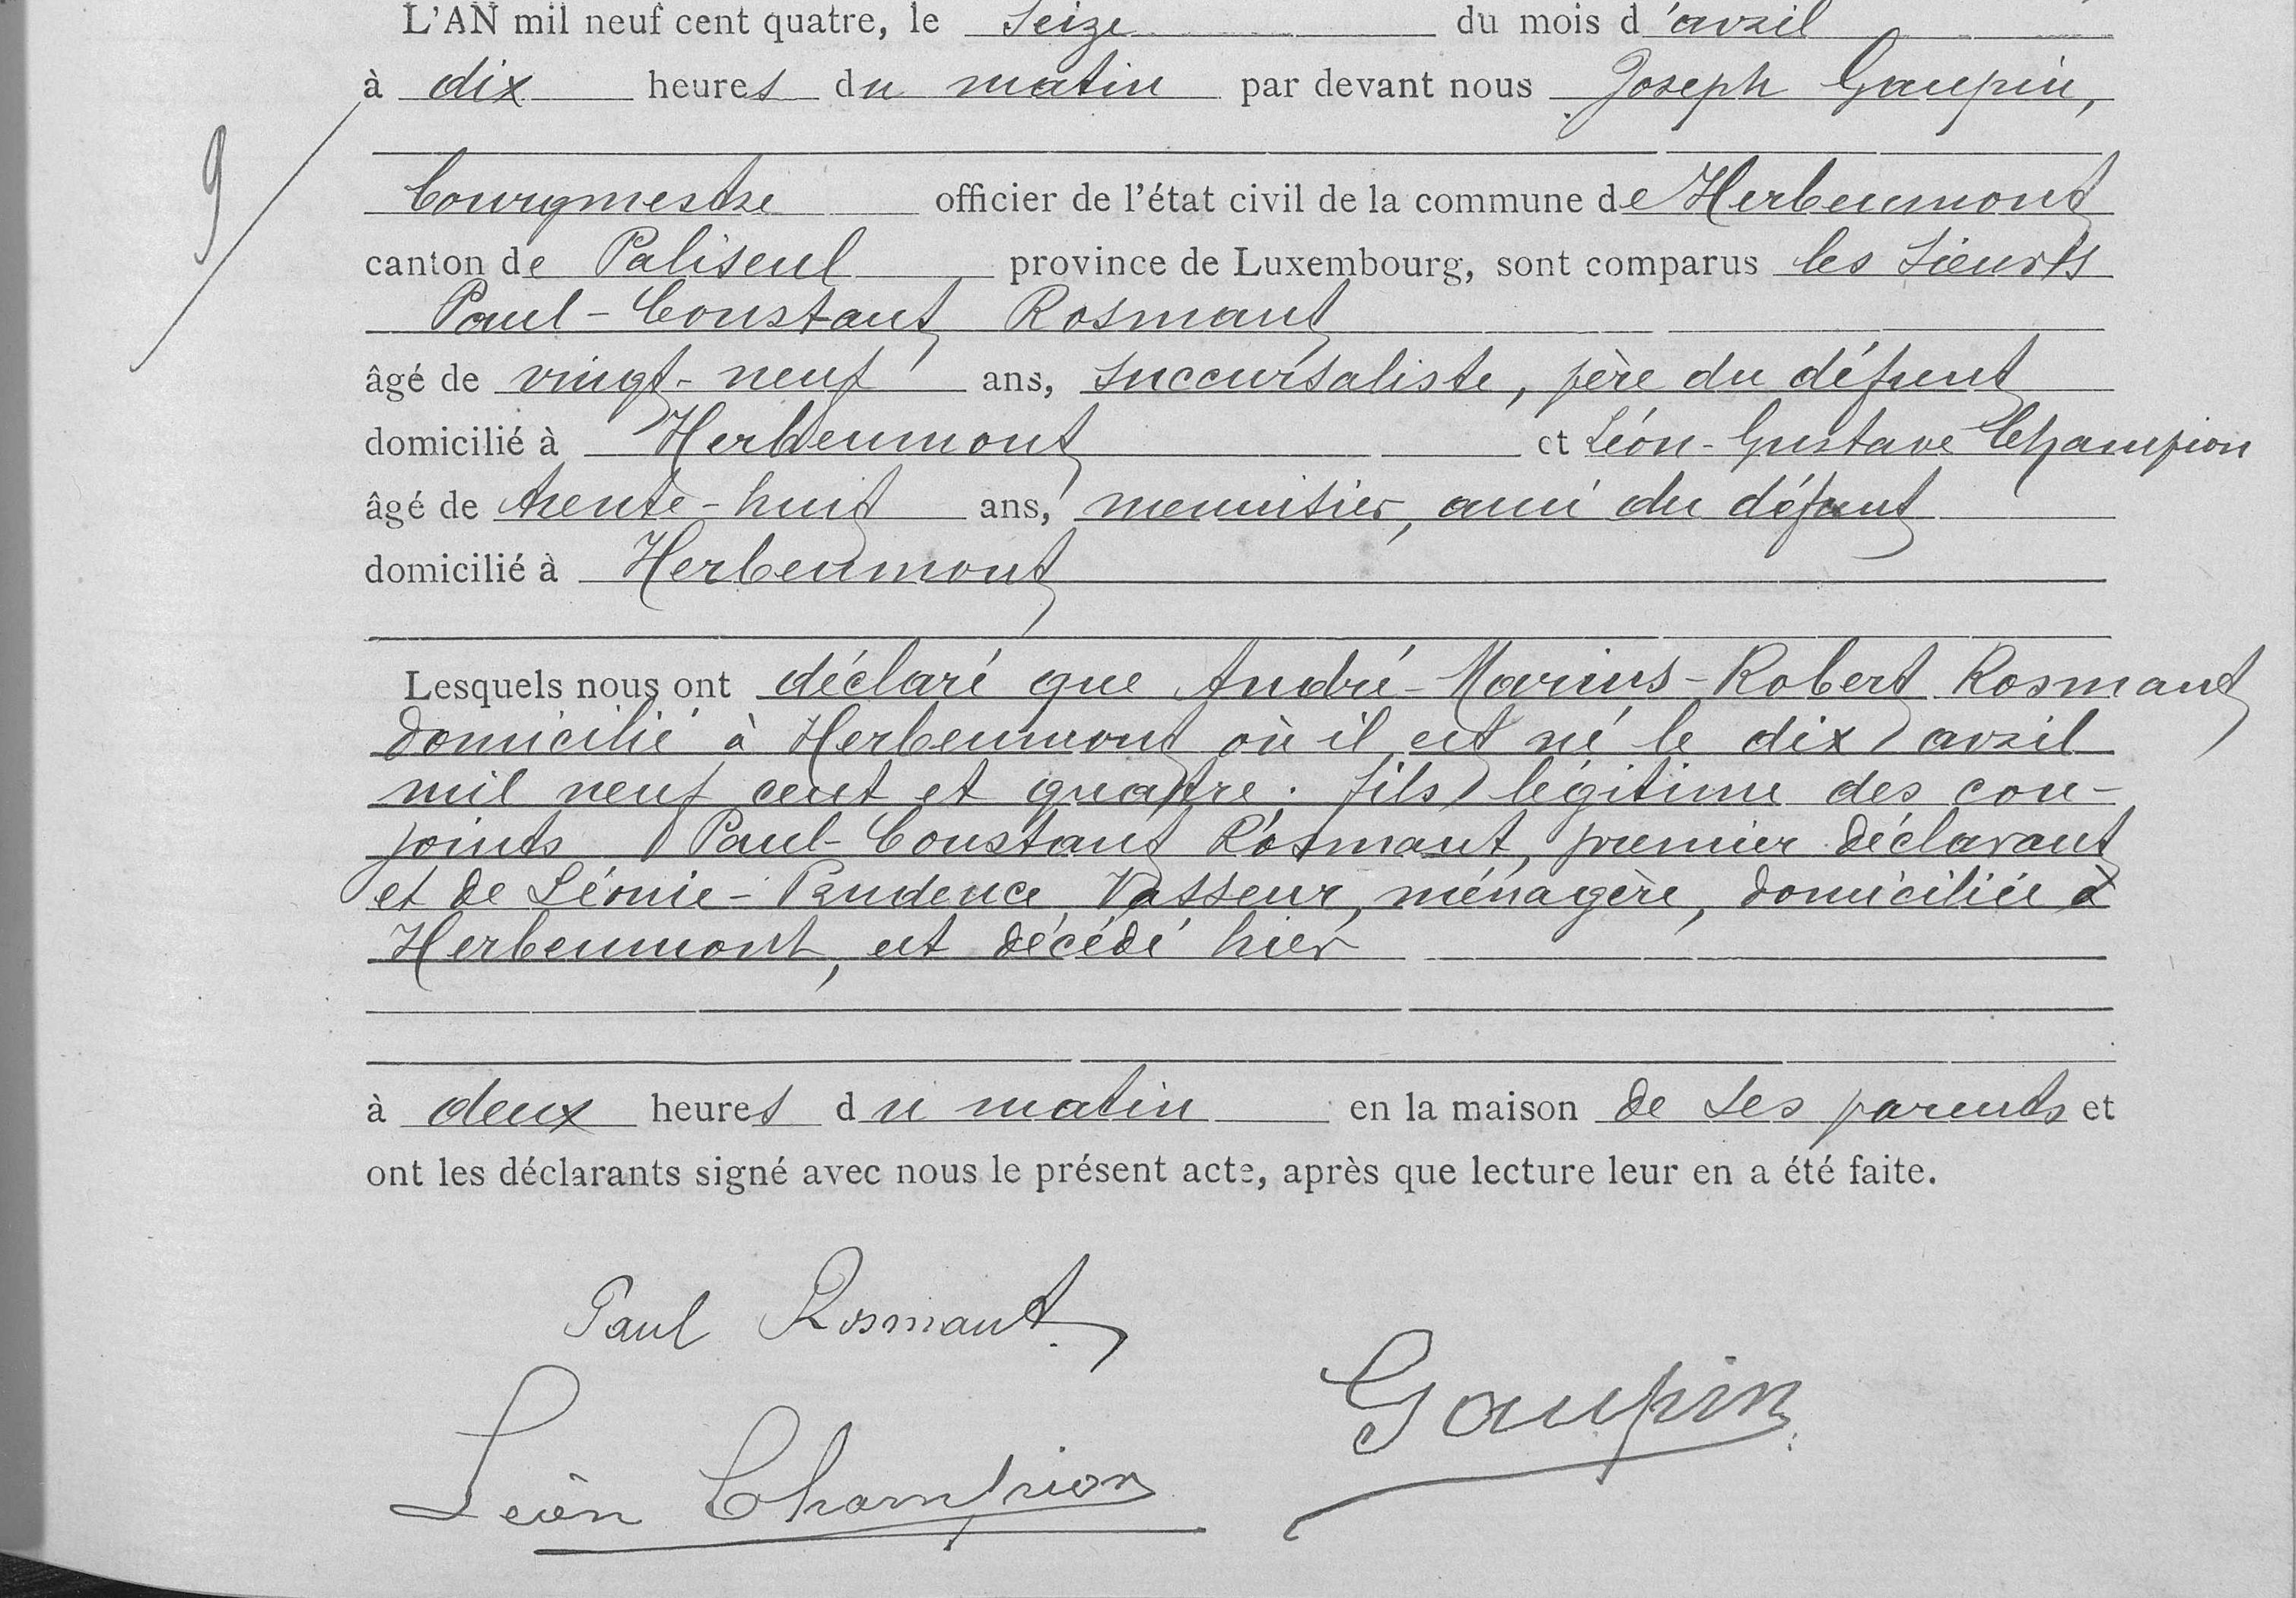 L'AN mil neuf cent quatre, le seize du mois d'avril
à dix heures du matin par devant nous Joseph Gaupin,
9
bourgmestre officier de l'état civil de la commune de Herbeumont
canton de Paliseul province de Luxembourg, sont comparus les sieurs
Paul-Constant Rosmant
âgé de vingt-neuf ans, succursaliste, père du défunt
domicilié à Herbeumont et Léon-Gustave Champion
âgé de trente-huit ans, menuisier, ami du défunt
domicilié à Herbeumont
Lesquels nous ont déclaré que André-Marius-Robert Rosmant
domicilié à Herbeumont où il est né le dix avril
mil neuf cent et quatre. fils légitime des con-
joints Paul-Constant Rosmant, premier déclarant
et de Léonie-Prudence Vasseur, ménagère, domiciliée à
Herbeumont, est décédé hier
à deux heures du matin en la maison de ses parents et
ont les déclarants signé avec nous le présent acte, après que lecture leur en a été faite.
Paul Rosmant
Gaupin
Léon Champion